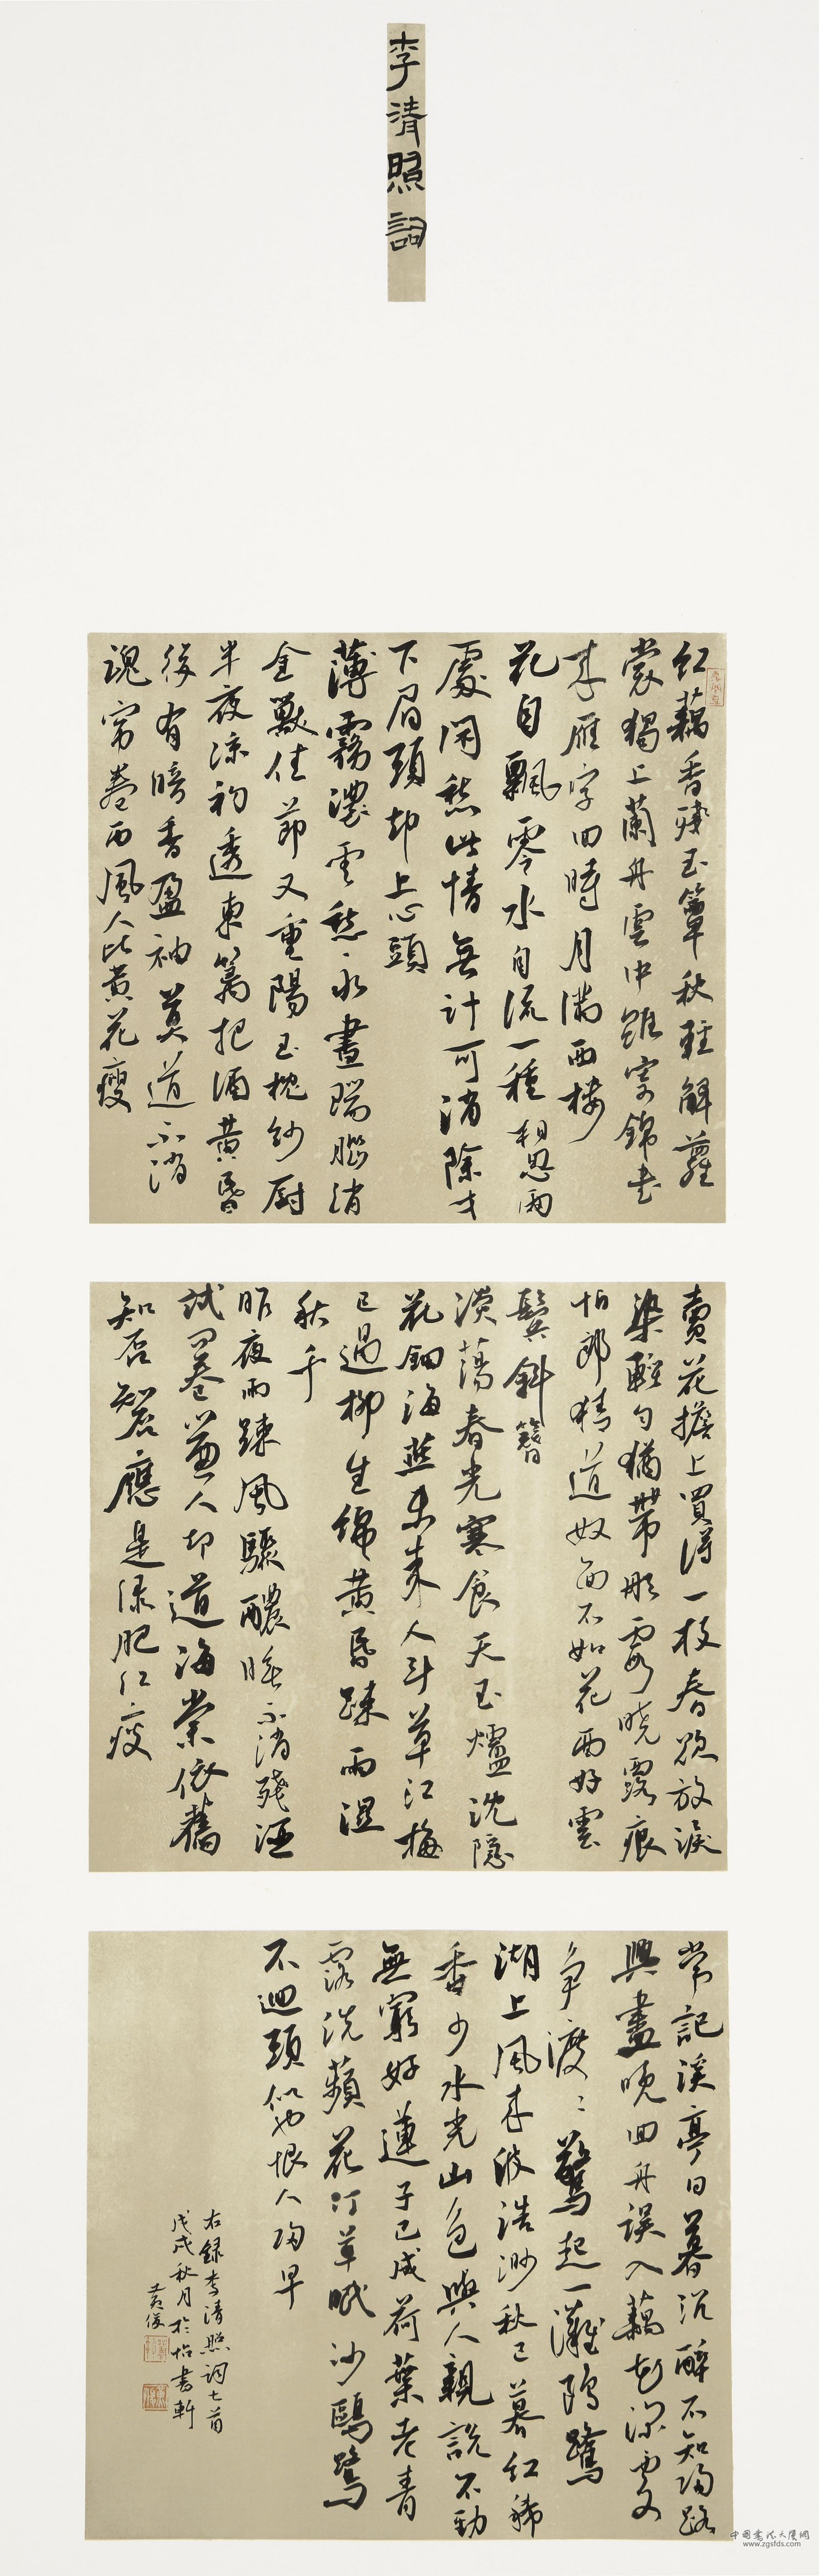 李清照詞
紅藕香殘玉簟秋輕解羅
裳獨上蘭舟雲中誰寄錦書
來雁字回時月滿西樓
花自飄零水自流一種相思兩
處閑愁此情無計可消除才
下眉頭却上心頭
薄霧濃雲愁永晝瑞腦消
金獸佳節又重陽玉枕紗厨
半夜涼初透東籬把酒黄昏
後有暗香盈袖莫道不消
魂簾卷西風人比黄花瘦
賣花擔上買得一枝春欲放淚
染輕勻猶帶彤霞曉露痕
怕郎猜道奴面不如花面好雲
鬢斜簪
淡蕩春光寒食天玉爐沈
花鈿海燕未來人斗草江梅
已過柳生綿黄昏疎雨濕
秋千
昨夜雨踈風驟醲睡不消殘酒
試問卷簾人却道海棠依舊
知否知否應是綠肥紅瘦
常記溪亭日暮沉醉不知歸路
興盡晚回舟誤入藕花深處
争渡〻驚起一灘鷗鷺
湖上風來波浩渺秋已暮紅稀
香少水光山色與人親說不
無窮好蓮子已成荷葉老青
露洗蘋花汀草眠沙鷗鷺
不迴頭似也恨人歸早
右録李清照詞七首
戊戌秋月於怡書軒
黄俊
中国书法大厦网
www.zgsfds.com